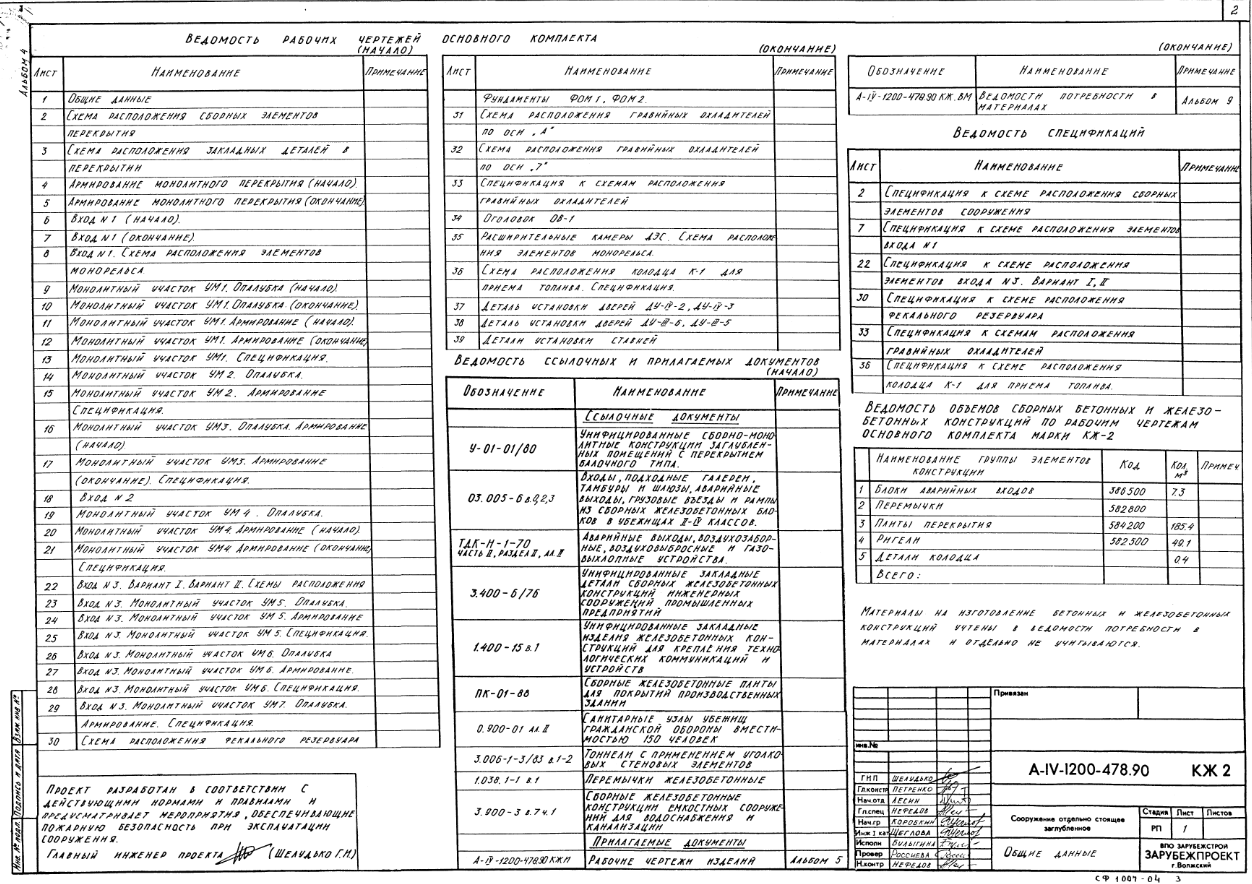 2
Альбом 4
Ведомость рабочих чертежей основного комплекта
(начало)
Лист Наименование Примечание
1 Общие данные
2 Схема расположения сборных элементов
перекрытия
3 Схема расположения закладных деталей в
перекрытии
4 Армирование монолитного перекрытия (начало).
5 Армирование монолитного перекрытия (окончание)
6 Вход N1 (начало).
7 Вход N1 (окончание).
8 Вход N1. Схема расположения элементов
монорельса
9 Монолитный участок УМ1. Опалубка (начало).
10 Монолитный участок УМ1. Опалубка. (окончание).
11 Монолитный участок УМ1. Армирование (начало).
12 Монолитный участок УМ1. Армирование (окончание)
13 Монолитный участок УМ1. Спецификация.
14 Монолитный участок УМ2. Опалубка.
15 Монолитный участок УМ2. Армирование
Спецификация.
16 Монолитный участок УМ3. Опалубка. Армирование
(начало)
17 Монолитный участок УМ3. Армирование
(окончание). Спецификация.
18 Вход N2
19 Монолитный участок УМ4. Опалубка.
20 Монолитный участок УМ4. Армирование (начало).
21 Монолитный участок УМ4. Армирование (окончание)
Спецификация.
22 Вход N3. Вариант I, Вариант II. Схемы расположения
23 Вход N3. Монолитный участок УМ5. Опалубка.
24 Вход N3. Монолитный участок УМ5. Армирование
25 Вход N3. Монолитный участок УМ5. Спецификация.
26 Вход N3. Монолитный участок УМ6. Опалубка
27 Вход N3. Монолитный участок УМ6. Армирование.
28 Вход N3. Монолитный участок УМ6. Спецификация.
29 Вход N3. Монолитный участок УМ7. Опалубка.
Армирование. Спецификация.
30 Схема расположения фекального резервуара
Проект разработан в соответствии с
действующими нормами и правилами и
предусматривает мероприятия, обеспечивающие
пожарную безопасность при эксплуатации
сооружения.
Главный инженер проекта (Шелудько Г.Н.)
Взам инв №
Подпись и дата
Инв. № подл.
(окончание)
Лист Наименование Примечание
Фундаменты ФОМ1, ФОМ2.
31 Схема расположения гравийных охладителей
по оси „А"
32 Схема расположения гравийных охладителей
по оси „7"
33 Спецификация к схемам расположения
гравийных охладителей
34 Оголовок ОВ-1
35 Расширительные камеры ДЭС. Схема расположе-
ния элементов монорельса.
36 Схема расположения колодца К-1 для
приема топлива. Спецификация.
37 Деталь установки дверей ДУ-IV-2, ДУ-IV-3
38 Деталь установки дверей ДУ-III-6, ДУ-III-5
39 Детали установки ставней
Ведомость ссылочных и прилагаемых документов
(начало)
Обозначение Наименование Примечание
Ссылочные документы
У-01-01/80 Унифицированные сборно-моно-
литные конструкции заглублен-
ных помещений с перекрытием
балочного типа.
03.005-6 в.0,2,3 Входы, подходные галереи,
тамбуры и шлюзы, аварийные
выходы, грузовые въезды и рампы
из сборных железобетонных бло-
ков в убежищах II-IV классов.
ТДК-Н-1-70 Аварийные выходы, воздухозабор-
часть II, раздел II, ал. II ные, воздуховыбросные и газо-
выхлопные устройства.
3.400-6/76 Унифицированные закладные
детали сборных железобетонных
конструкций инженерных
сооружений промышленных
предприятий
1.400-15 в.1 Унифицированные закладные
изделия железобетонных кон-
струкций для крепления техно-
логических коммуникаций и
устройств
ПК-01-88 Сборные железобетонные плиты
для покрытий производственных
зданий
0.900-01 ал. II Санитарные узлы убежищ
гражданской обороны вмести-
мостью 150 человек
3.006-1-3/83 в.1-2 Тоннели с применением уголко-
вых стеновых элементов
1.038.1-1 в.1 Перемычки железобетонные
3.900-3 в.7 ч.1 Сборные железобетонные
конструкции емкостных сооруже-
ний для водоснабжения и
канализации
Прилагаемые документы
А-IV-1200-478.90 КЖИ Рабочие чертежи изделий Альбом 5
(окончание)
Обозначение Наименование Примечание
А-IV-1200-478.90 КЖ.ВМ Ведомости потребности в Альбом 9
материалах
Ведомость спецификаций
Лист Наименование Примечание
2 Спецификация к схеме расположения сборных
элементов сооружения
7 Спецификация к схеме расположения элементов
входа N1
22 Спецификация к схеме расположения
элементов входа N3. Вариант I, II
30 Спецификация к схеме расположения
фекального резервуара
33 Спецификация к схемам расположения
гравийных охладителей
36 Спецификация к схеме расположения
колодца К-1 для приема топлива.
Ведомость объемов сборных бетонных и железо-
бетонных конструкций по рабочим чертежам
основного комплекта марки КЖ-2
Наименование группы элементов Код Кол. Примеч
конструкции м³
1 Блоки аварийных входов 586500 7.3
2 Перемычки 582800
3 Плиты перекрытия 584200 185.4
4 Ригели 582500 49.1
5 Детали колодца 0.4
Всего:
Материалы на изготовление бетонных и железобетонных
конструкций учтены в ведомости потребности в
материалах и отдельно не учитываются.
Привязан
инв.№
А-IV-1200-478.90 КЖ 2
ГНП Шелудько
Гл.констр Петренко
Нач.отд Лесин
Гл.спец Нефедов
Нач.гр Коробкин
Инж 1 кат Щеглова
Исполн Булыгина
Провер
Н.контр Нефедов
Сооружение отдельно стоящее
заглубленное
Стадия Лист Листов
РП 1
Общие данные
ВПО ЗАРУБЕЖСТРОЙ
ЗАРУБЕЖПРОЕКТ
г.Волжский
СФ 1007-04 3